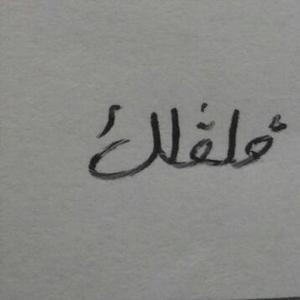 فلفلك